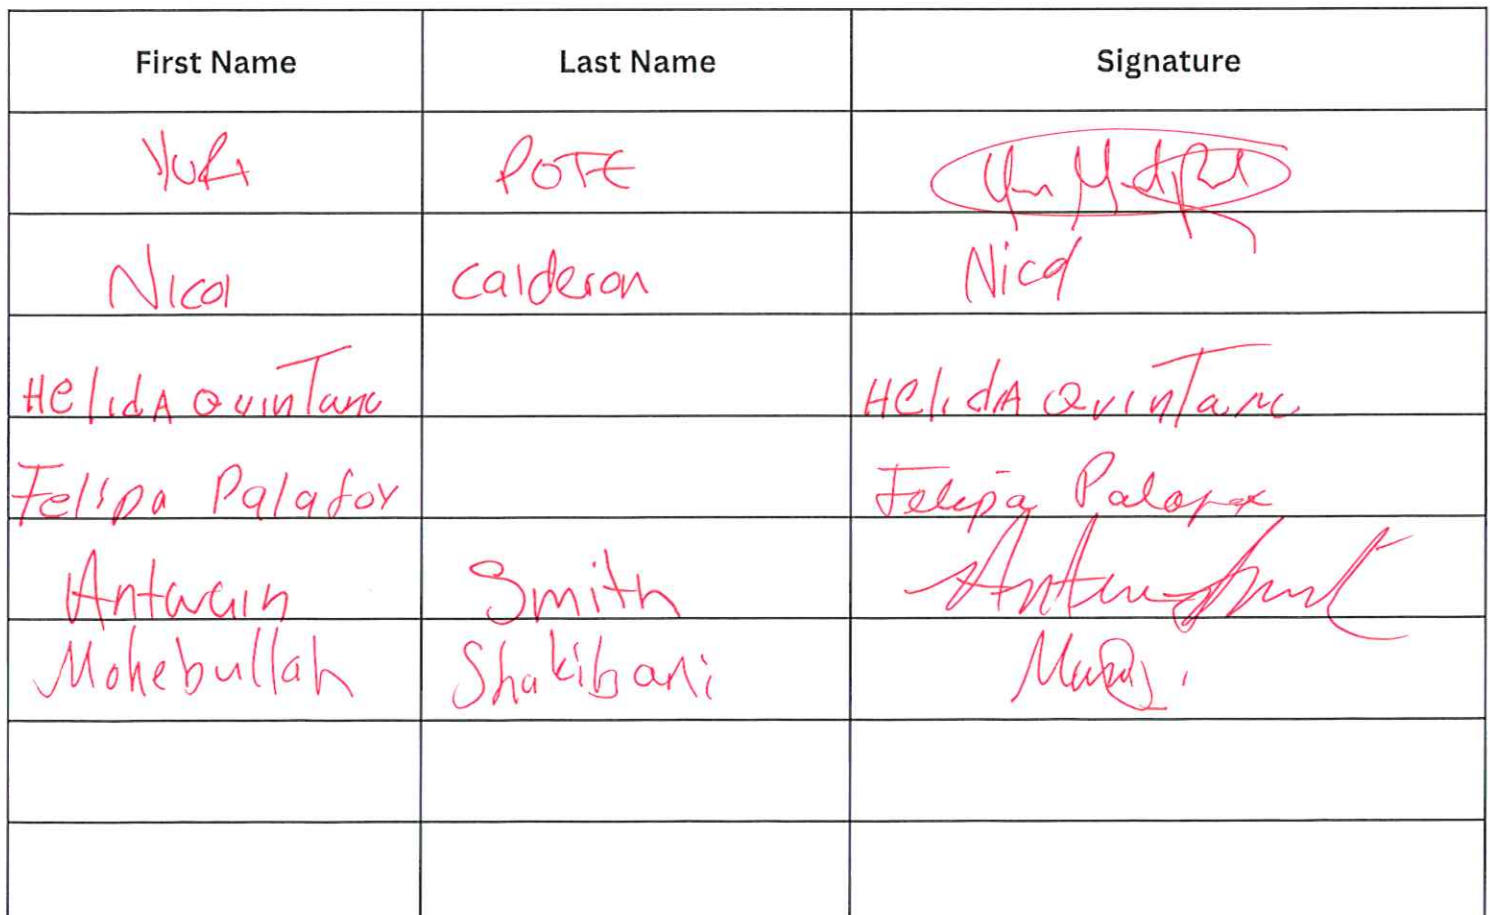 First Name Last Name Signature
YURA POTE
Nicol Calderon Nicol
HelidA Quintana HelidA Quintana
Felipa Palafox Felipa Palafox
Antwain Smith
Mohebullah Shakibani